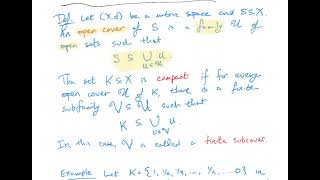 Def. Let (X,d) be a metric space and S⊆X.
An open cover of S is a family U of
open sets such that
S ⊆ ⋃ U.
U∈U
The set K⊆X is compact if for every
open cover U of K, there is a finite
subfamily V⊆U such that
K ⊆ ⋃ U.
U∈V
In this case, V is called a finite subcover.
Example Let K = {1, 1/2, 1/3, ..., 1/n, ... 0} in